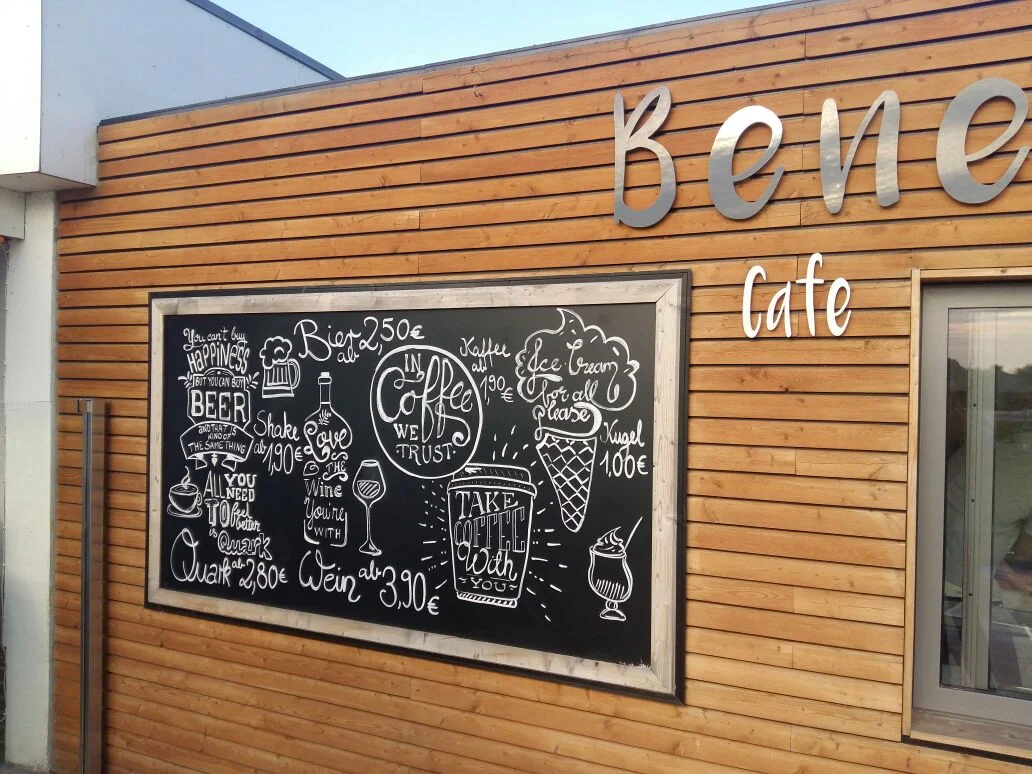 Bene
Cafe
You can't buy
HAPPINESS
BUT YOU CAN BUY
BEER
AND THAT IS
KIND OF
THE SAME THING
Bier ab 2,50€
Shake
ab 1,90€
ALL YOU
NEED
TO feel
better
is Quark
Quark ab 2,80€
Love
THE
Wine
You're
WITH
Wein ab 3,90€
IN
Coffee
WE
TRUST
Kaffee
ab
1,90€
TAKE
COFFEE
With
YOU
Ice Cream
for all
please
Kugel
1,00€